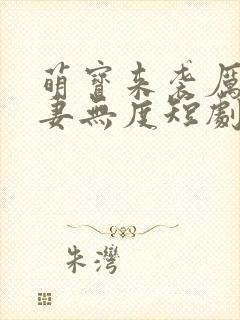 萌寶來襲厲
妻無度短劇
朱灣